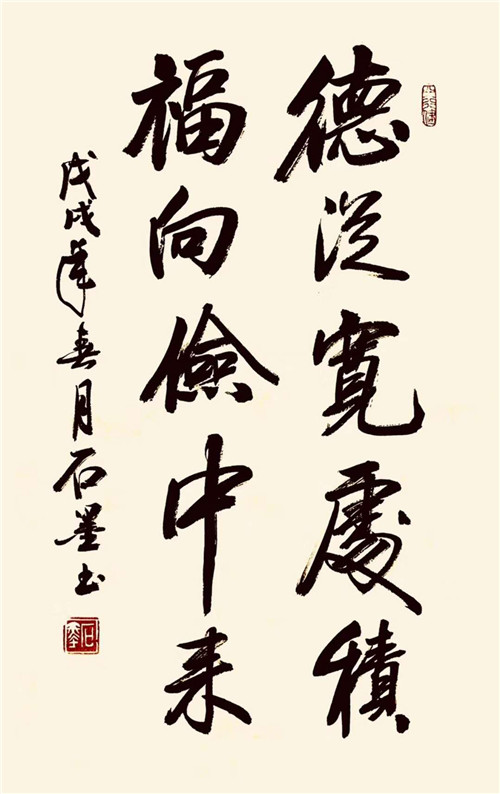 德從寬處積
福向儉中来
戊戌年春月石墨书